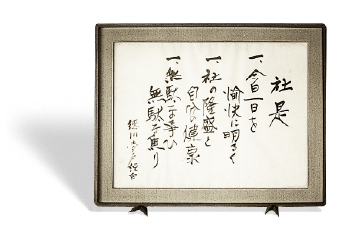 社是
一、今日一日を
愉快に明るく
一、社の隆盛と
自分の健康
一、無駄な争ひ
無駄な焦り